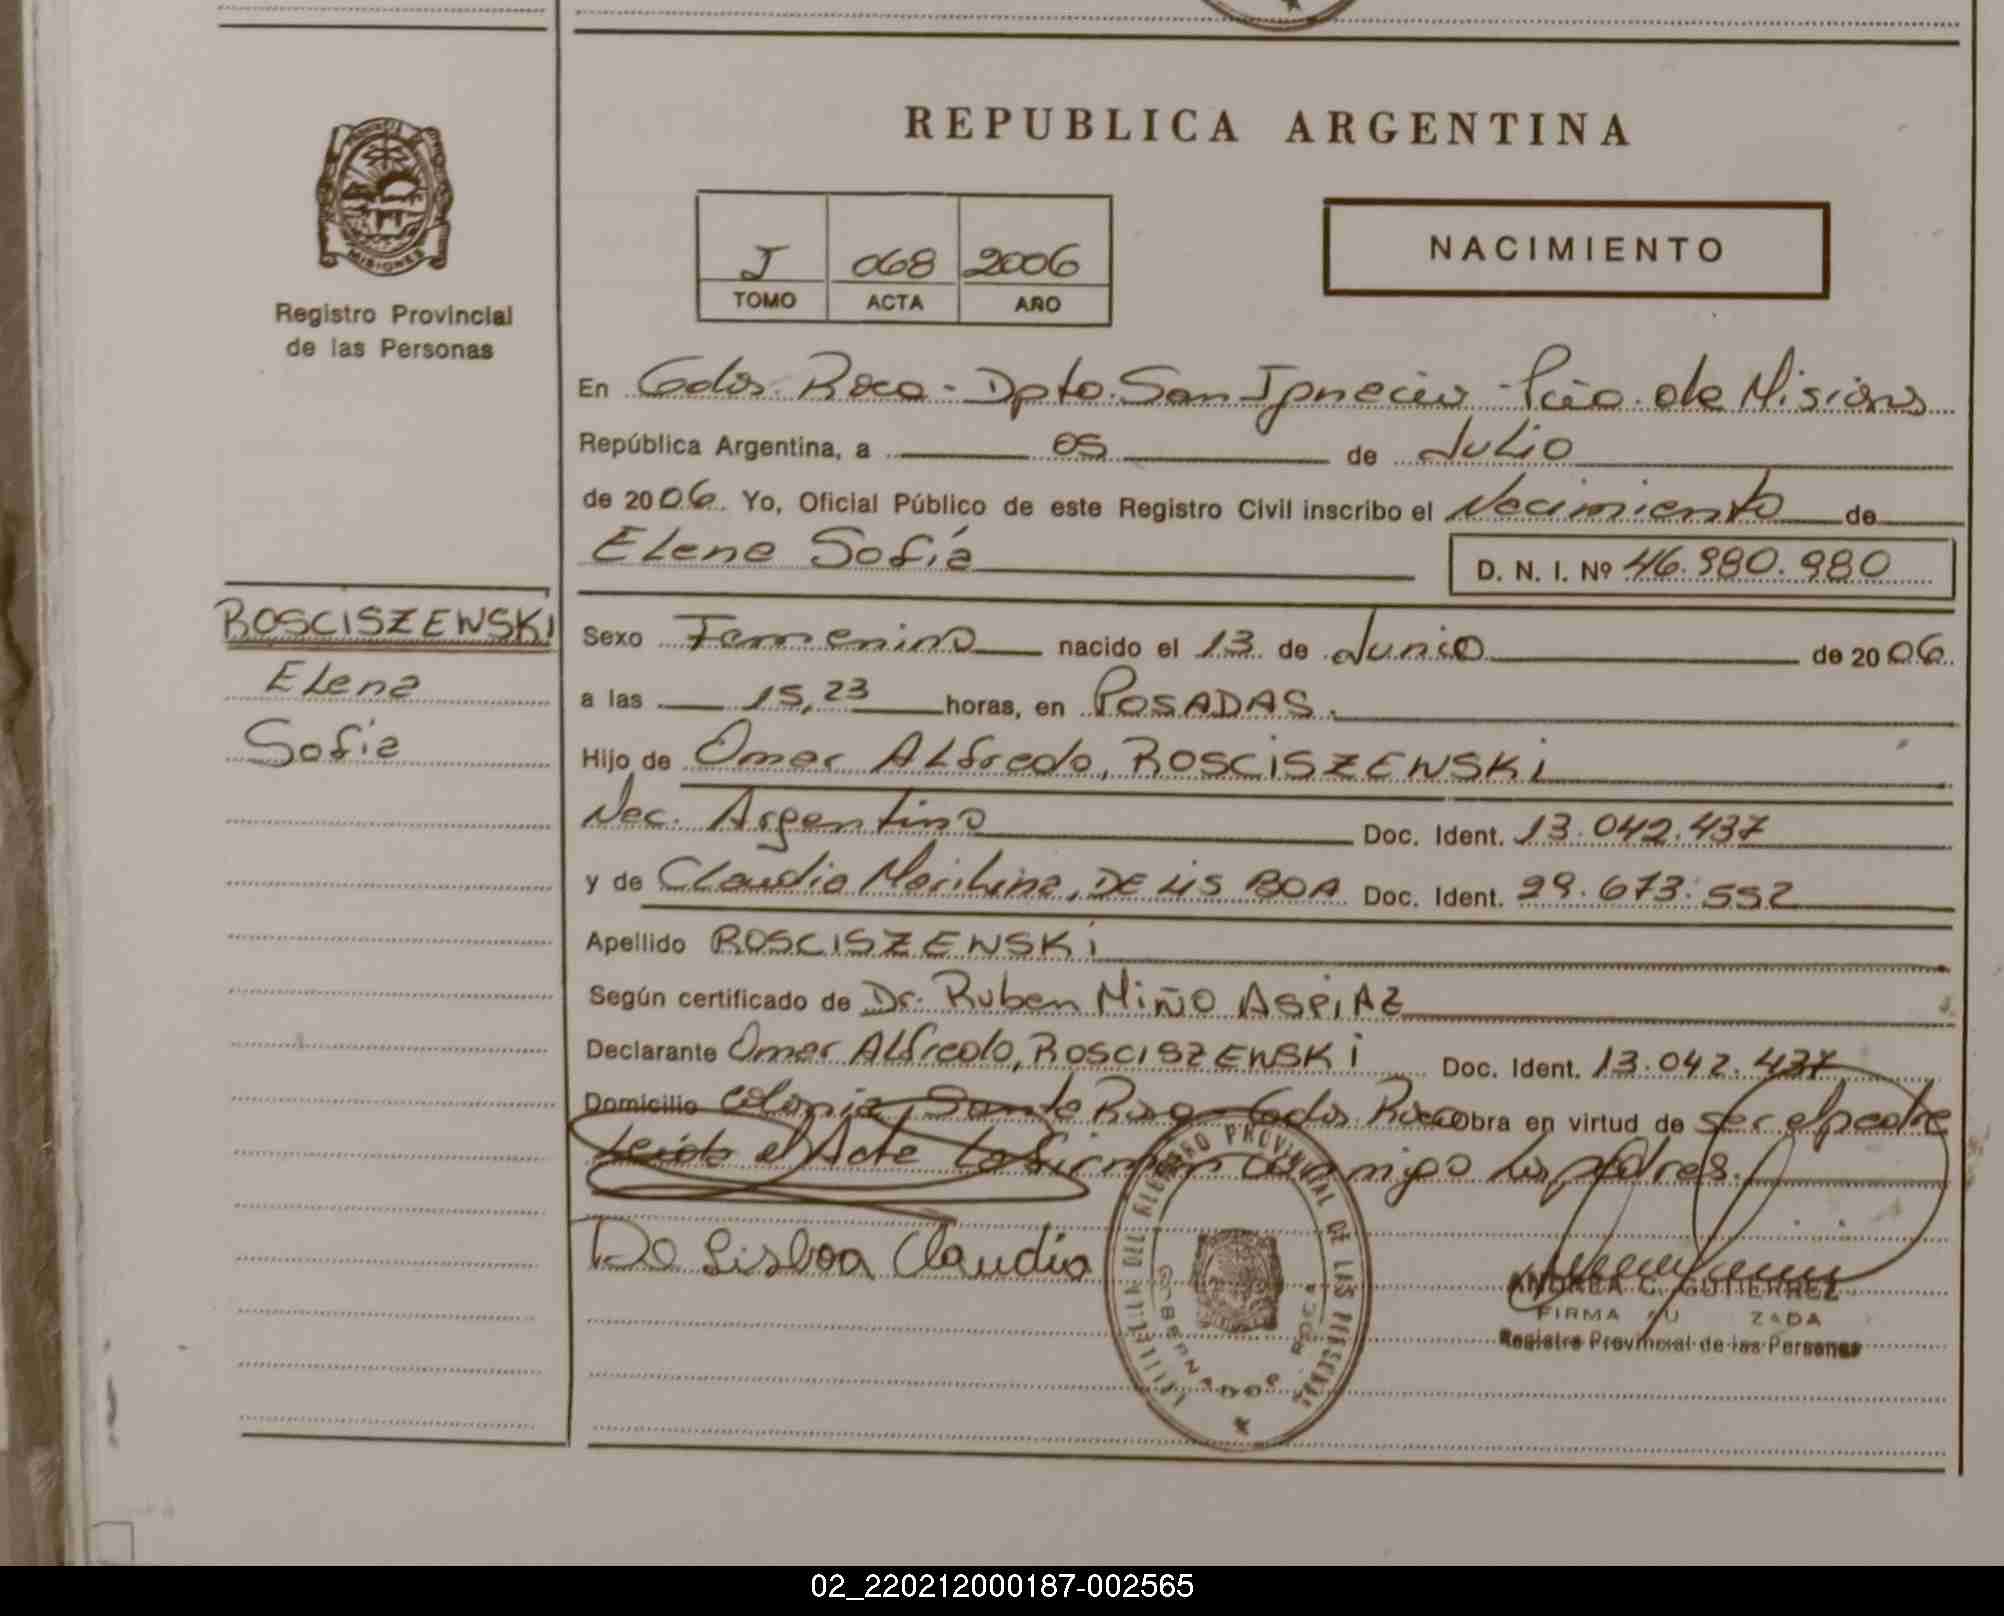 REPUBLICA ARGENTINA
MISIONES
Registro Provincial
de las Personas
J 068 2006
TOMO ACTA AÑO
NACIMIENTO
En Gdor. Roca - Dpto. San Ignacio - Pcia. de Misiones
República Argentina, a 05 de Julio
de 2006. Yo, Oficial Público de este Registro Civil inscribo el Nacimiento de
Elena Sofía D. N. I. Nº 46.980.980
ROSCISZEWSKI
Elena
Sofia
Sexo Femenino nacido el 13 de Junio de 2006.
a las 15,23 horas, en POSADAS.
Hijo de Omar Alfredo, ROSCISZEWSKI
Nac. Argentino Doc. Ident. 13.042.437
y de Claudia Marilina, DE LISBOA Doc. Ident. 29.673.552
Apellido ROSCISZEWSKI
Según certificado de Dr. Ruben Miño ASPIAZ
Declarante Omar Alfredo, ROSCISZEWSKI Doc. Ident. 13.042.437
Domicilio Colonia Santa Rosa - Gdor. Roca Obra en virtud de ser el padre
Leida el Acta La firman conmigo los padres.
De Lisboa Claudia
REGISTRO PROVINCIAL DE LAS PERSONAS
GOBERNADOR ROCA
ANDREA C. GUTIERREZ
FIRMA AU ZADA
Registro Provincial de las Personas
02_220212000187-002565